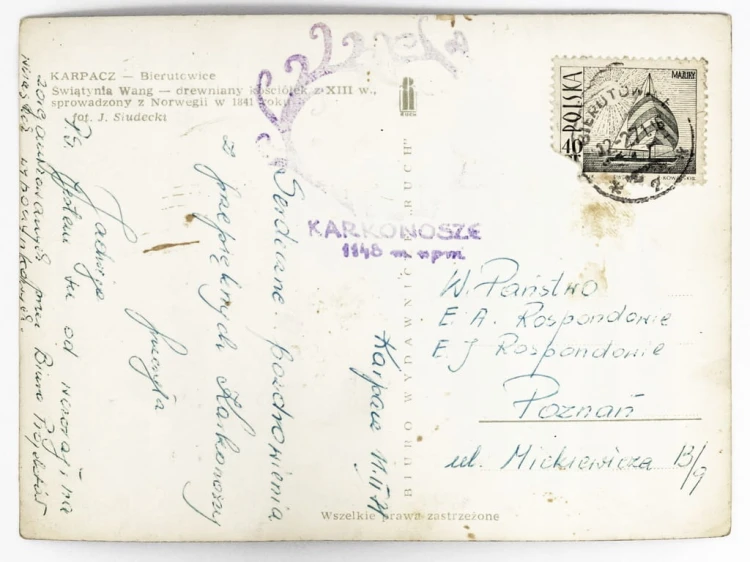 KARPACZ — Bierutowice
Świątynia Wang — drewniany kościółek z XIII w.,
sprowadzony z Norwegii w 1841 roku
fot. J. Siudecki
POLSKA
MAZURY
40
BIERUTOWICE
KARKONOSZE
1148 m npm
BIURO WYDAWNICZE "RUCH"
Karpacz 11.II 71
Serdeczne pozdrowienia
z przepięknych Karkonoszy
Jadwiga
P.S. Jestem tu od wczoraj na
zorganizowanych przez Biuro Projektów
W. Państwo
E. A. Rospondowie
E. J Rospondowie
Poznań
ul. Mickiewicza 13/9
Wszelkie prawa zastrzeżone